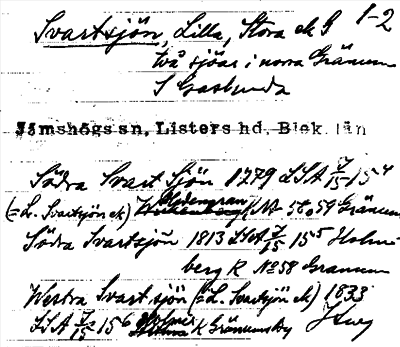 Svartsjön, Lilla, Stora ek G 1-2
två sjöar i norra Gränum
S Gaslunda
Jämshögs sn, Listers hd. Blek. län
Södra Svart Sjön 1779 LSA 7/15 15⁴
(=L. Svartsjön ek) K № 58 o 59 Gränum
Södra Svartsjön 1813 LSA 7/15 15⁵ Holm
berg K № 58 Granum
Westra Svart sjön (=L. Svartsjön ek) 1833
LSA 7/15 15⁶ K Gränum